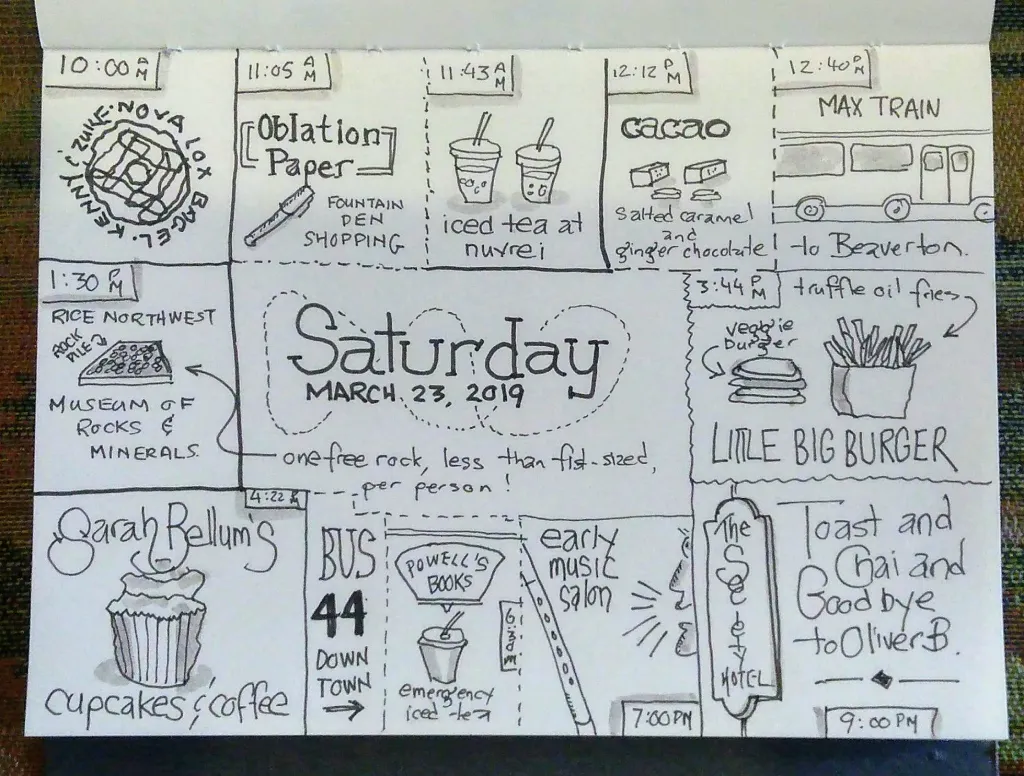 10:00 AM
KENNY & ZUKE · NOVA LOX BAGEL ·
11:05 AM
Oblation
Paper
FOUNTAIN
PEN
SHOPPING
11:43 AM
iced tea at
nuvrei
12:12 PM
cacao
salted caramel
and
ginger chocolate
12:40 PM
MAX TRAIN
to Beaverton.
1:30 PM
RICE NORTHWEST
ROCK
PILE
MUSEUM OF
ROCKS &
MINERALS.
Saturday
MARCH 23, 2019
one free rock, less than fist-sized,
per person!
3:44 PM
truffle oil fries
veggie
burger
LITTLE BIG BURGER
4:22 PM
Sarah Bellum's
cupcakes & coffee
BUS
44
DOWN
TOWN
POWELL'S
BOOKS
emergency
iced-tea
early
music
salon
7:00 PM
The
Society
HOTEL
Toast and
Chai and
Goodbye
to Oliver B.
9:00 PM